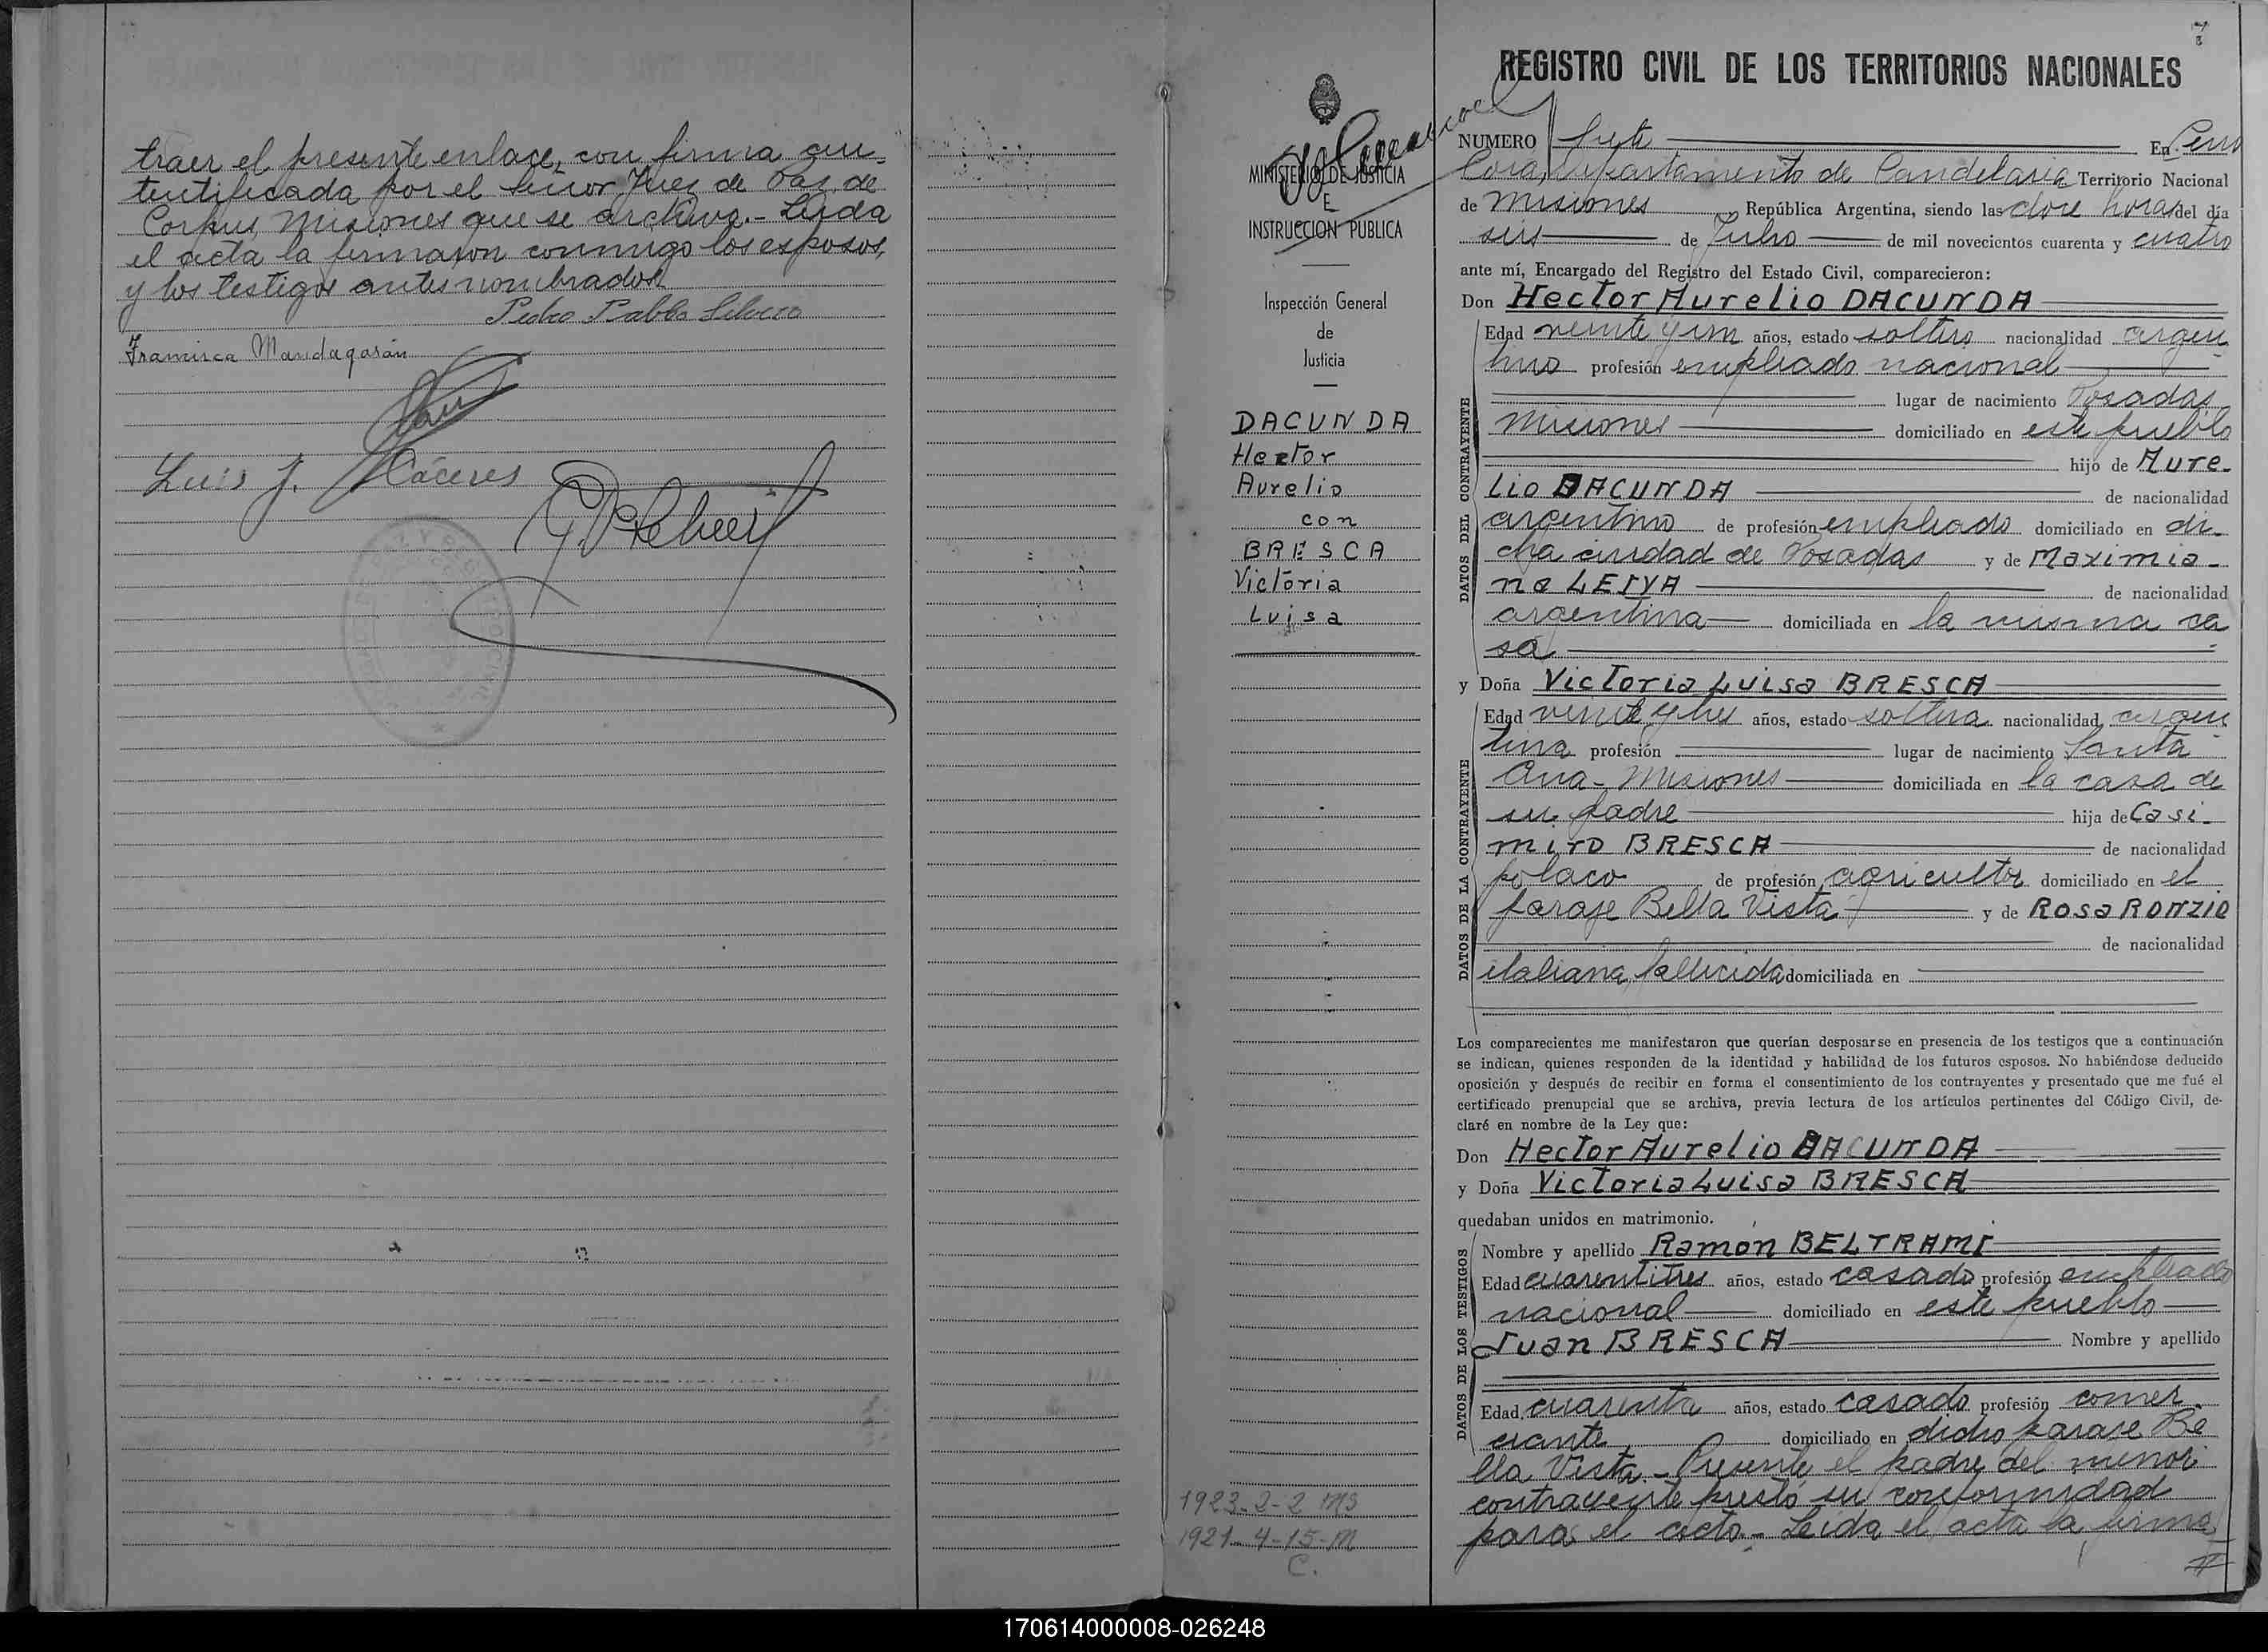 traer el presente enlace, con firma au-
tentificada por el señor Juez de Paz de
Corpus, Misiones que se archiva.- Leída
el acta la firmaron conmigo los esposos,
y los testigos antes nombrados
Pedro Pablo
Francisca Mandagarán
Luis J. Cáceres
MINISTERIO DE JUSTICIA
E
INSTRUCCION PUBLICA
Inspección General
de
Justicia
DACUNDA
Hector
Aurelio
con
BRESCA
Victoria
Luisa
1923-2-2 MS
1921-4-15-M
C.
7
REGISTRO CIVIL DE LOS TERRITORIOS NACIONALES
NUMERO Siete En Cerro
Corá, departamento de Candelaria Territorio Nacional
de Misiones República Argentina, siendo las doce horas del día
seis de Julio de mil novecientos cuarenta y cuatro
ante mí, Encargado del Registro del Estado Civil, comparecieron:
Don Hector Aurelio DACUNDA
Edad veinte y un años, estado soltero nacionalidad argen
tino profesión empleado nacional
lugar de nacimiento Posadas
Misiones domiciliado en este pueblo
hijo de Aure-
lio DACUNDA de nacionalidad
argentino de profesión empleado domiciliado en di-
cha ciudad de Posadas y de Maximia-
na LEIVA de nacionalidad
argentina domiciliada en la misma ca
sa
DATOS DEL CONTRAYENTE
y Doña Victoria Luisa BRESCA
Edad veinte y tres años, estado soltera nacionalidad argen
tina profesión lugar de nacimiento Santa
Ana- Misiones domiciliada en la casa de
su padre hija de Casi-
miro BRESCA de nacionalidad
polaco de profesión agricultor domiciliado en el
paraje Bella Vista y de Rosa RONZIO
de nacionalidad
italiana, fallecida domiciliada en
DATOS DE LA CONTRAYENTE
Los comparecientes me manifestaron que querían desposarse en presencia de los testigos que a continuación
se indican, quienes responden de la identidad y habilidad de los futuros esposos. No habiéndose deducido
oposición y después de recibir en forma el consentimiento de los contrayentes y presentado que me fué el
certificado prenupcial que se archiva, previa lectura de los artículos pertinentes del Código Civil, de-
claré en nombre de la Ley que:
Don Hector Aurelio DACUNDA
y Doña Victoria Luisa BRESCA
quedaban unidos en matrimonio.
Nombre y apellido Ramón BELTRAMI
Edad cuarentitres años, estado casado profesión empleado
nacional domiciliado en este pueblo
Juan BRESCA Nombre y apellido
Edad cuarenta años, estado casado profesión comer
ciante domiciliado en dicho paraje Be
lla Vista- Presente el padre del menor
contrayente prestó su conformidad
para el acto- Leída el acta la firma
DATOS DE LOS TESTIGOS
170614000008-026248